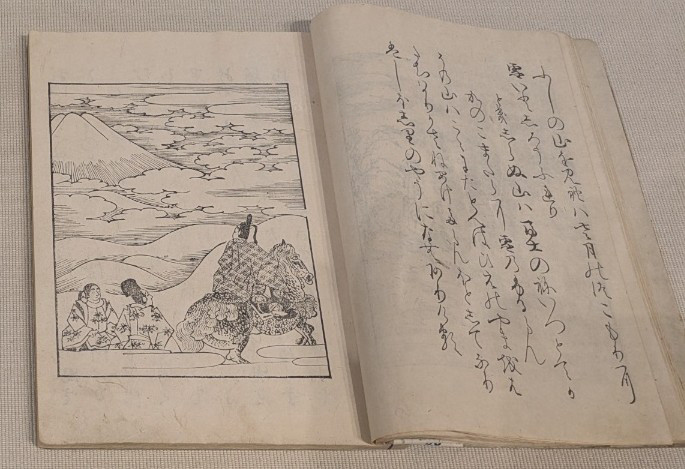 ふしの山を見れはさ月のつこもりに
雪いとしろうふれり
時しらぬ山は冨士のねいつとてか
かのこまたらに雪のふるらん
その山はこゝにたとへはひえのやまを
はたちはかりかさねあけたらんほとしてなり
はしほしりのやうになんありける